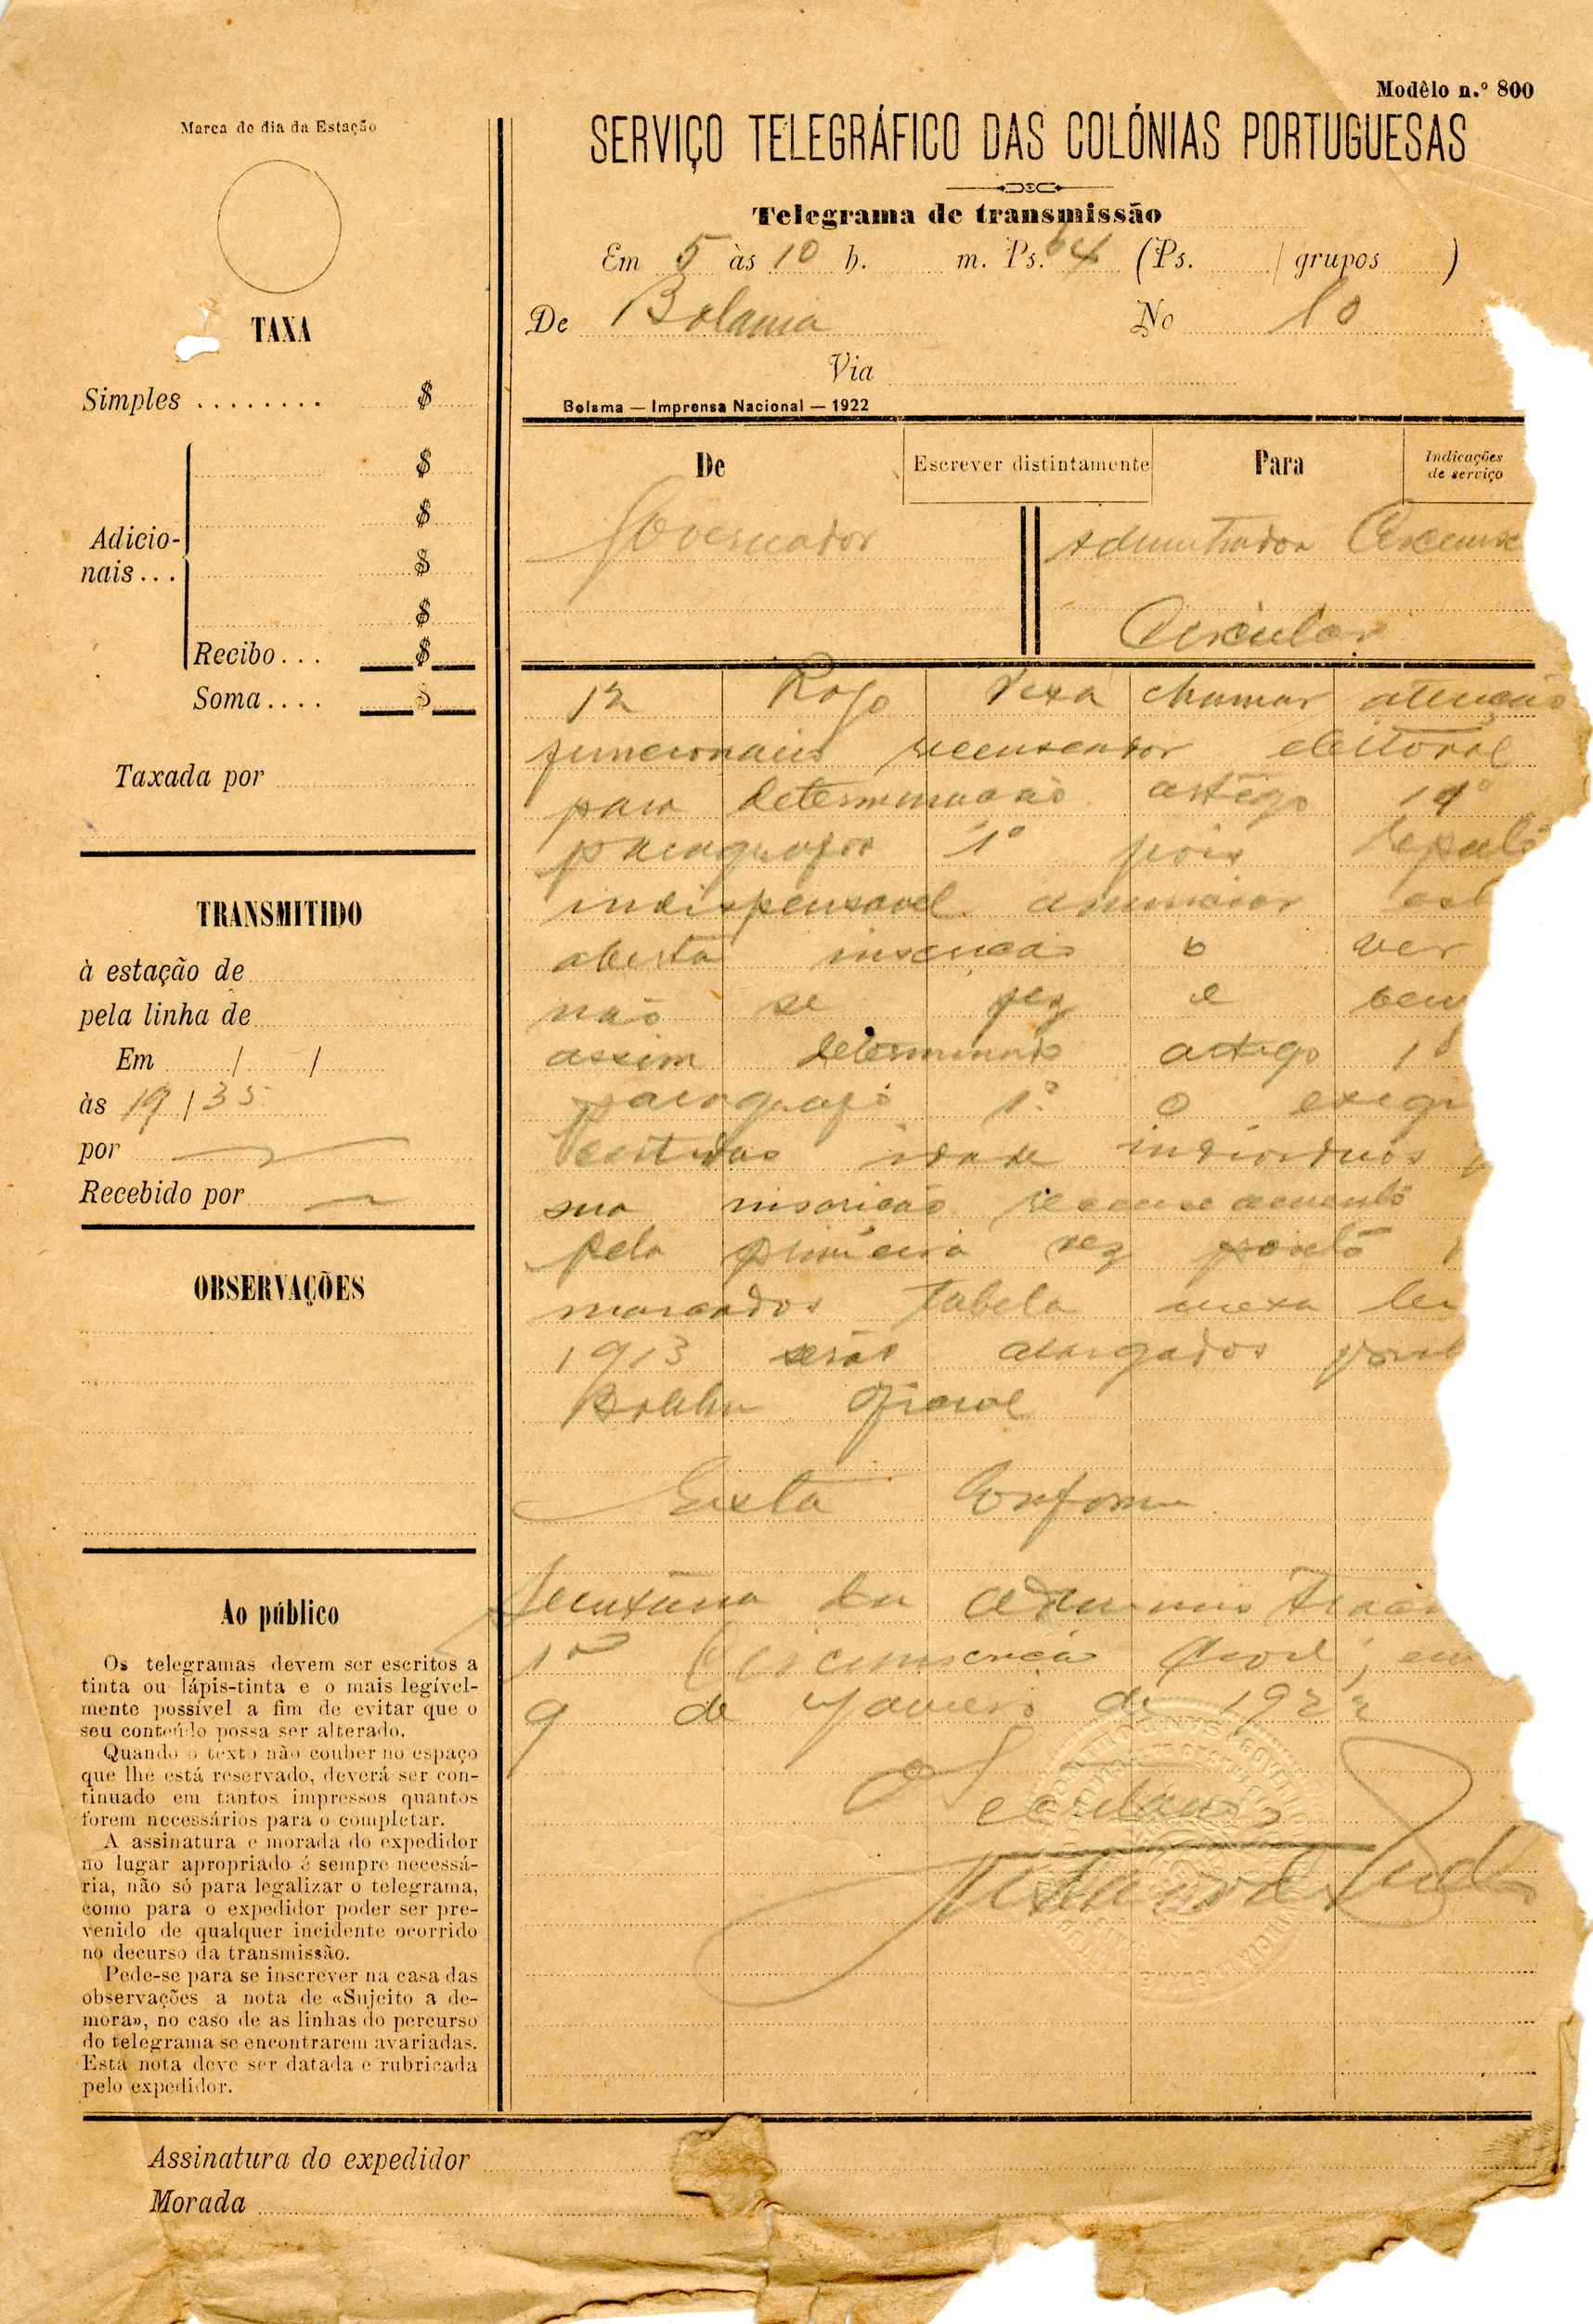 Modêlo n.º 800
Marca do dia da Estação
SERVIÇO TELEGRÁFICO DAS COLÓNIAS PORTUGUESAS
Telegrama de transmissão
Em 5 às 10 h. m. Ps. 64 (Ps. / grupos )
De Bolama No 10
Via
Bolama — Imprensa Nacional — 1922
TAXA
Simples ........ $
$
$
Adicio-
nais... $
$
Recibo... $
Soma.... $
Taxada por
TRANSMITIDO
à estação de
pela linha de
Em / /
às 19 / 35
por
Recebido por
OBSERVAÇÕES
Ao público
Os telegramas devem ser escritos a
tinta ou lápis-tinta e o mais legível-
mente possível a fim de evitar que o
seu conteúdo possa ser alterado.
Quando o texto não couber no espaço
que lhe está reservado, deverá ser con-
tinuado em tantos impressos quantos
forem necessários para o completar.
A assinatura e morada do expedidor
no lugar apropriado é sempre necessá-
ria, não só para legalizar o telegrama,
como para o expedidor poder ser pre-
venido de qualquer incidente ocorrido
no decurso da transmissão.
Pede-se para se inscrever na casa das
observações a nota de «Sujeito a de-
mora», no caso de as linhas do percurso
do telegrama se encontrarem avariadas.
Esta nota deve ser datada e rubricada
pelo expedidor.
De Escrever distintamente Para Indicações
de serviço
Governador
Circular
12 Rogo Vexa chamar atenção
recenseador eleitoral
para determinação artigo
1º pois
indispensavel
aberta inscrição o ver
não se fez e bem
assim determinado artigo
paragrafo 1º o exigir
certidão idade individuos
sua inscrição recenseamento
pela primeira vez
marcados tabela anexa lei
1913 serão alargados
Boletim Oficial
Está Conforme
Secretaria da Administração
1ª Circunscrição Civil, em
9 de Janeiro de 192
O Secretario
Assinatura do expedidor
Morada